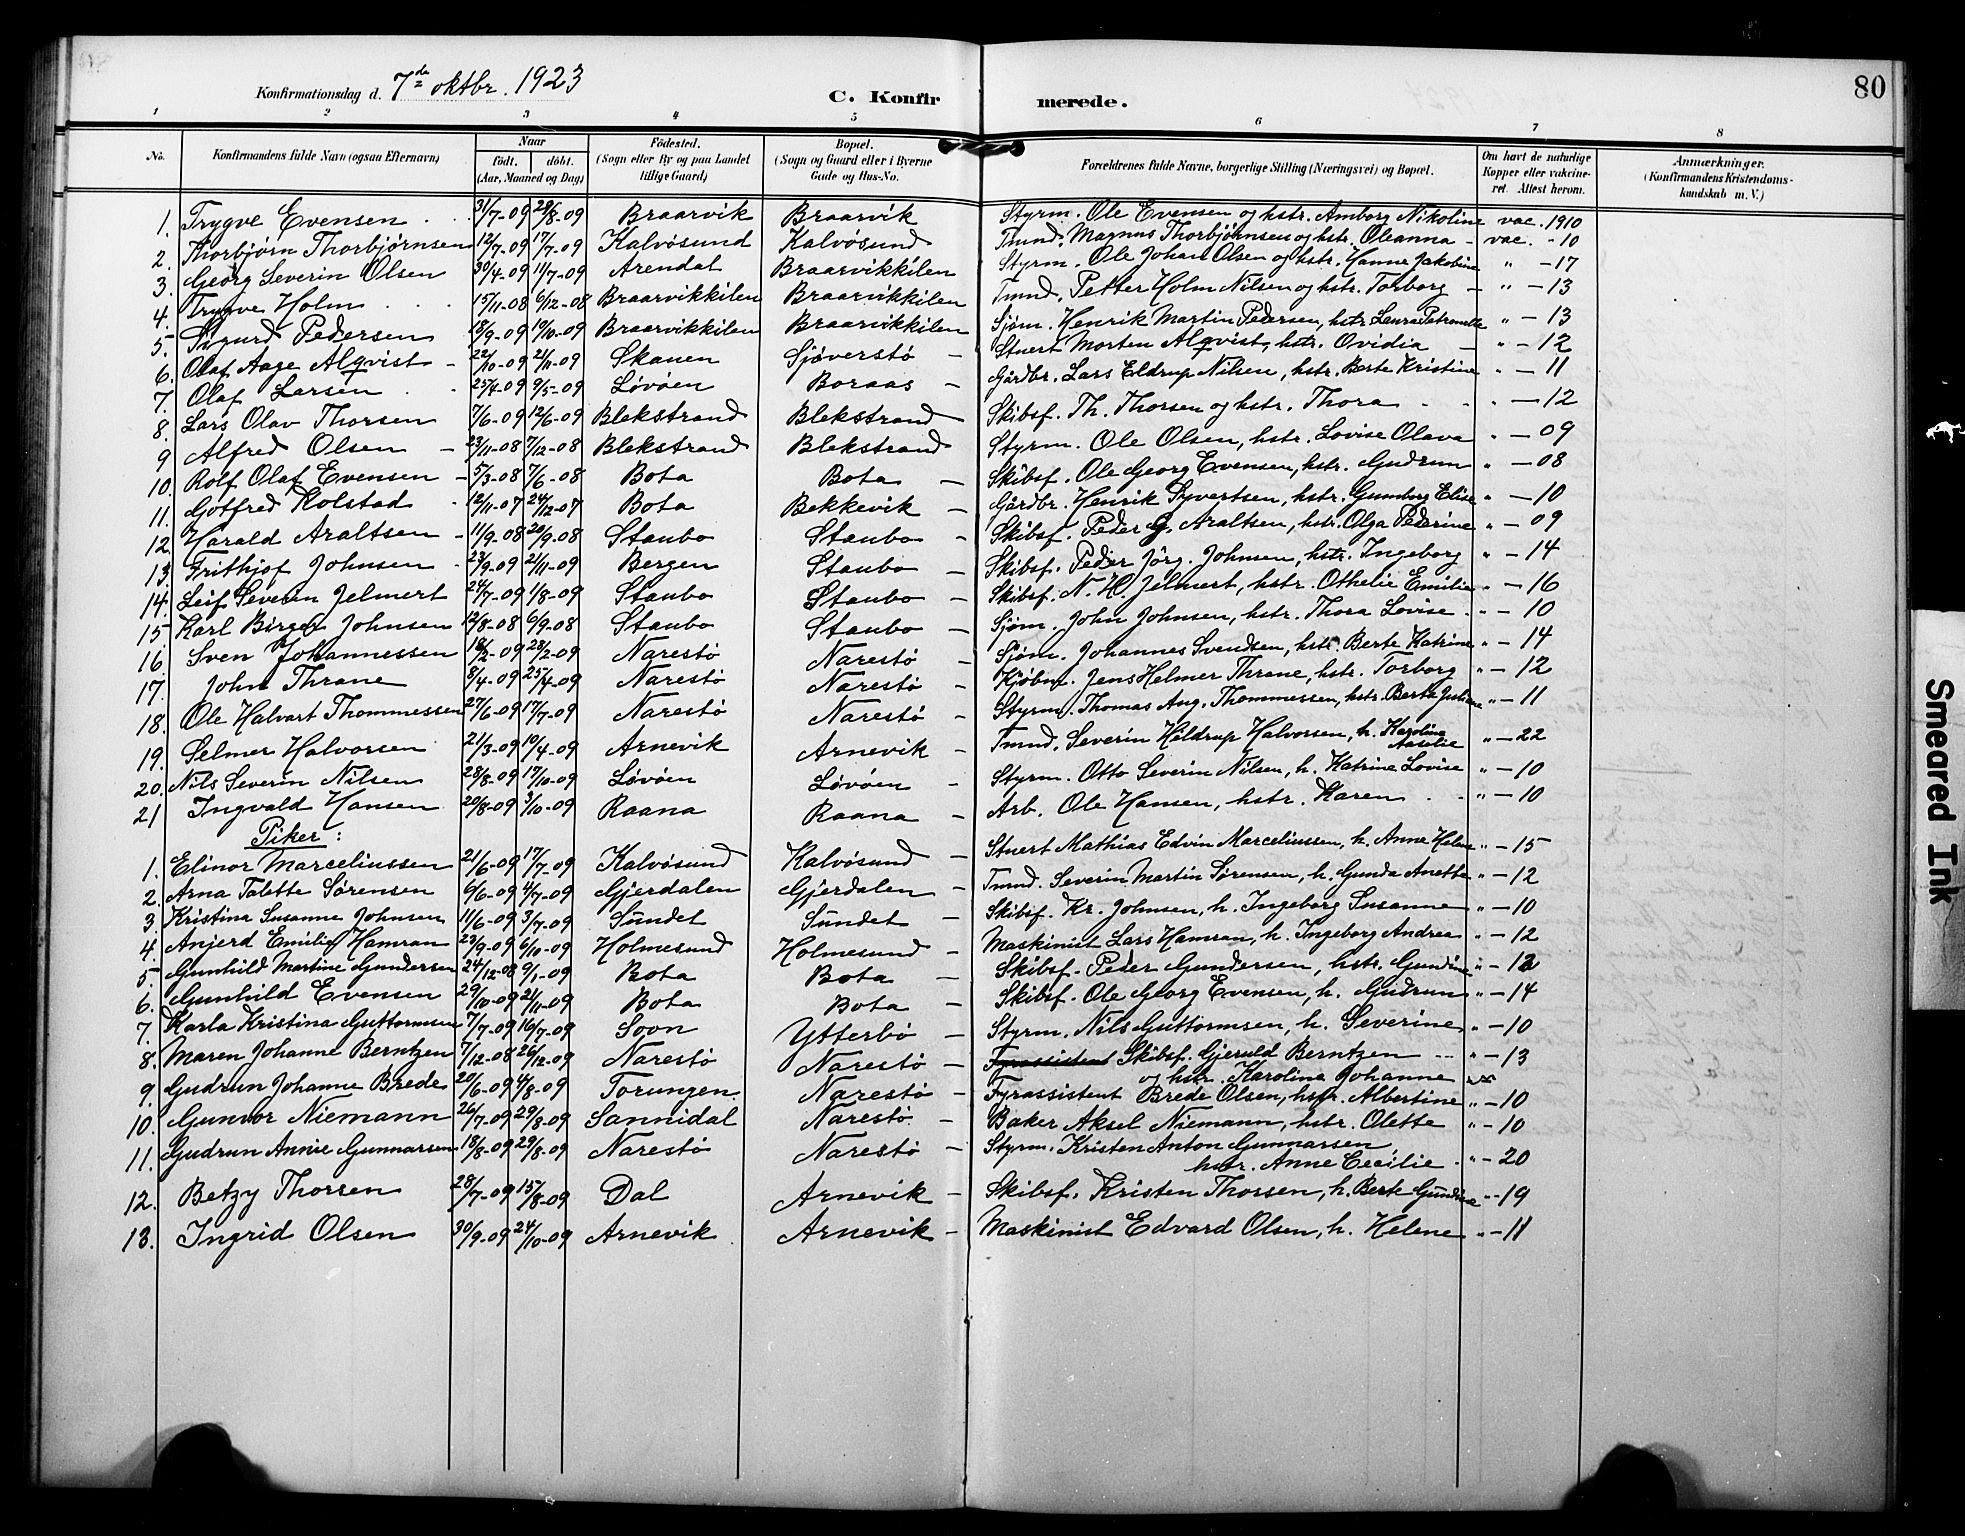 80
Konfirmationsdag d. 7de oktbr. 1923
C. Konfirmerede.
1 2 3 4 5 6 7 8
No. Konfirmandens fulde Navn (ogsaa Efternavn) Naar født. døbt. (Aar, Maaned og Dag) Fødested. (Sogn eller By og paa Landet tillige Gaard) Bopæl. (Sogn og Gaard eller i Byerne Gade og Hus-No. Forældrenes fulde Navne, borgerlige Stilling (Næringsvei) og Bopæl. Om havt de naturlige Kopper eller vakcineret. Attest herom. Anmærkninger. (Konfirmandens Kristendomskundskab m. V.)
1. Trygve Evensen 31/7-09 29/8-09 Braarvik Braarvik Styrm. Ole Evensen og hstr. Amborg Nikoline vac. 1910
2. Thorbjørn Thorbjørnsen 12/7-09 17/7-09 Kalvøsund Kalvøsund Tmnd. Magnus Thorbjørnsen og hstr. Oleanna - vac. - 10
3. Georg Severin Olsen 30/4-09 11/7-09 Arendal Braarvikkilen Styrm. Ole Johan Olsen og hstr. Hanne Jakobine " - 17
4. Trygve Holm 15/11-08 6/12-08 Braarvikkilen Braarvikkilen Tmnd. Petter Holm Nilsen og hstr. Torborg - " - 13
5. Sigurd Pedersen 18/9-09 19/10-09 Braarvikkilen Braarvikkilen Sjøm. Henrik Martin Pedersen, hstr. Laura Petronelle " - 13
6. Olaf Aage Alqvist - 22/10-09 21/11-09 Skanen Sjøverstø - Stuert Morten Alqvist, hstr. Ovidia - " - 12
7. Olaf Larsen 25/4-09 9/5-09 Løvøen Boraas - Gårdbr. Lars Eldrup Nilsen, hstr. Berte Kristine " - 11
8. Lars Olav Thorsen 7/6-09 12/6-09 Blekstrand Blekstrand Skibsf. Th. Thorsen og hstr. Thora " - 12
9 Alfred Olsen - 23/11-08 7/12-08 Blekstrand Blekstrand Styrm. Ole Olsen, hstr. Lovise Olava " - 09
10. Rolf Olaf Evensen - 5/3-08 7/6-08 Bota Bota - Skibsf. Ole Georg Evensen, hstr. Gudrun " - 08
11. Gotfred Kolstad 12/11-07 24/12-07 Bota Bekkevik - Gårdbr. Henrik Syvertsen, hstr. Gunborg Elise " - 10
12. Harald Araltsen - 11/9-08 20/9-08 Staubo Staubo - Skibsf. Peder G. Araltsen, hstr. Olga Pederine " - 09
13. Frithjof Johnsen 23/9-09 21/11-09 Bergen Staubo - Skibsf. Peder Jörg. Johnsen, hstr. Ingeborg " - 14
14. Leif Severin Jelmert 24/7-09 1/8-09 Staubo Staubo - Skibsf. N. H. Jelmert, hstr. Othelie Emilie " - 16
15 Karl Birger Johnsen 12/8-08 6/9-08 Staubo Staubo - Sjøm. John Johnsen, hstr. Thora Lovise " - 10
16. Sven Johannessen 18/2-09 28/2-09 Narestø Narestø - Sjøm. Johannes Svendsen, hstr. Berte Katrine " - 14
17. John Thrane 8/4-09 25/4-09 Narestø Narestø - Kjøbm. Jens Helmer Thrane, hstr. Torborg " - 12
18. Ole Halvart Thommessen 27/6-09 17/7-09 Narestø Narestø - Styrm. Thomas Aug. Thommessen, hstr. Berta Juliane " - 11
19. Selmer Halvorsen 21/3-09 10/4-09 Arnevik Arnevik - Tmnd. Severin Hildrup Halvorsen, h. Karoline Aaselie " - 22
20. Nils Severin Nilsen 28/8-09 17/10-09 Løvøen Løvøen - Styrm. Otto Severin Nilsen, h. Katrine Lovise " - 10
21 Ingvald Hansen 20/8-09 3/10-09 Raana Raana - Arb. Ole Hansen, hstr. Karen " - 10
Piker:
1. Elinor Marceliussen 21/6-09 17/7-09 Kalvøsund Kalvøsund - Stuert Mathias Edvin Marceliussen, h. Anne Helene " - 15
2. Arna Talette Sørensen 6/6-09 4/7-09 Gjerdalen Gjerdalen - Tmnd. Severin Martin Sørensen, h. Gunda Anette " - 12
3. Kristina Susanne Johnsen 11/6-09 3/7-09 Sundet Sundet - Skibsf. Kr. Johnsen, h. Ingeborg Susanne " - 10
4. Anjerd Emilie Hamran 23/9-09 6/10-09 Holmesund Holmesund - Maskinist Lars Hamran, h. Ingeborg Andrea " - 12
5. Gunhild Martine Gundersen 24/12-08 9/1-09 Bota Bota - Skibsf. Peder Gundersen, hstr. Gundine " - 12
6. Gunhild Evensen 29/10-09 21/11-09 Bota Bota - Skibsf. Ole Georg Evensen, h. Gudrun " - 14
7. Karla Kristina Guttormsen 7/7-09 16/7-09 Soon Ytterbø - Styrm. Nils Guttormsen, h. Severine " - 10
8. Maren Johanne Berntzen 7/12-08 26/12-09 Narestø Narestø - Fyrassistent Skibsf. Gjeruld Berntzen " - 13
og hstr. Karoline Johanne
9. Gudrun Johanne Brede 20/6-09 4/8-09 Torungen Narestø - Fyrassistent Brede Olsen, hstr. Albertine " - 10
10. Gunvor Niemann 26/7-09 29/8-09 Sannidal Narestø - Baker Aksel Niemann, hstr. Olette " - 10
11. Gudrun Annie Gunnarsen 18/8-09 29/8-09 Narestø Narestø - Styrm. Kristen Anton Gunnarsen
hstr. Anne Cecilie " - 20
12. Betzy Thorsen 28/7-09 15/8-09 Dal Arnevik - Skibsf. Kristen Thorsen, h. Berte Gundine " - 19
13. Ingrid Olsen 30/9-09 24/10-09 Arnevik Arnevik - Maskinist Edvard Olsen, h. Helene " - 11
Smeared Ink